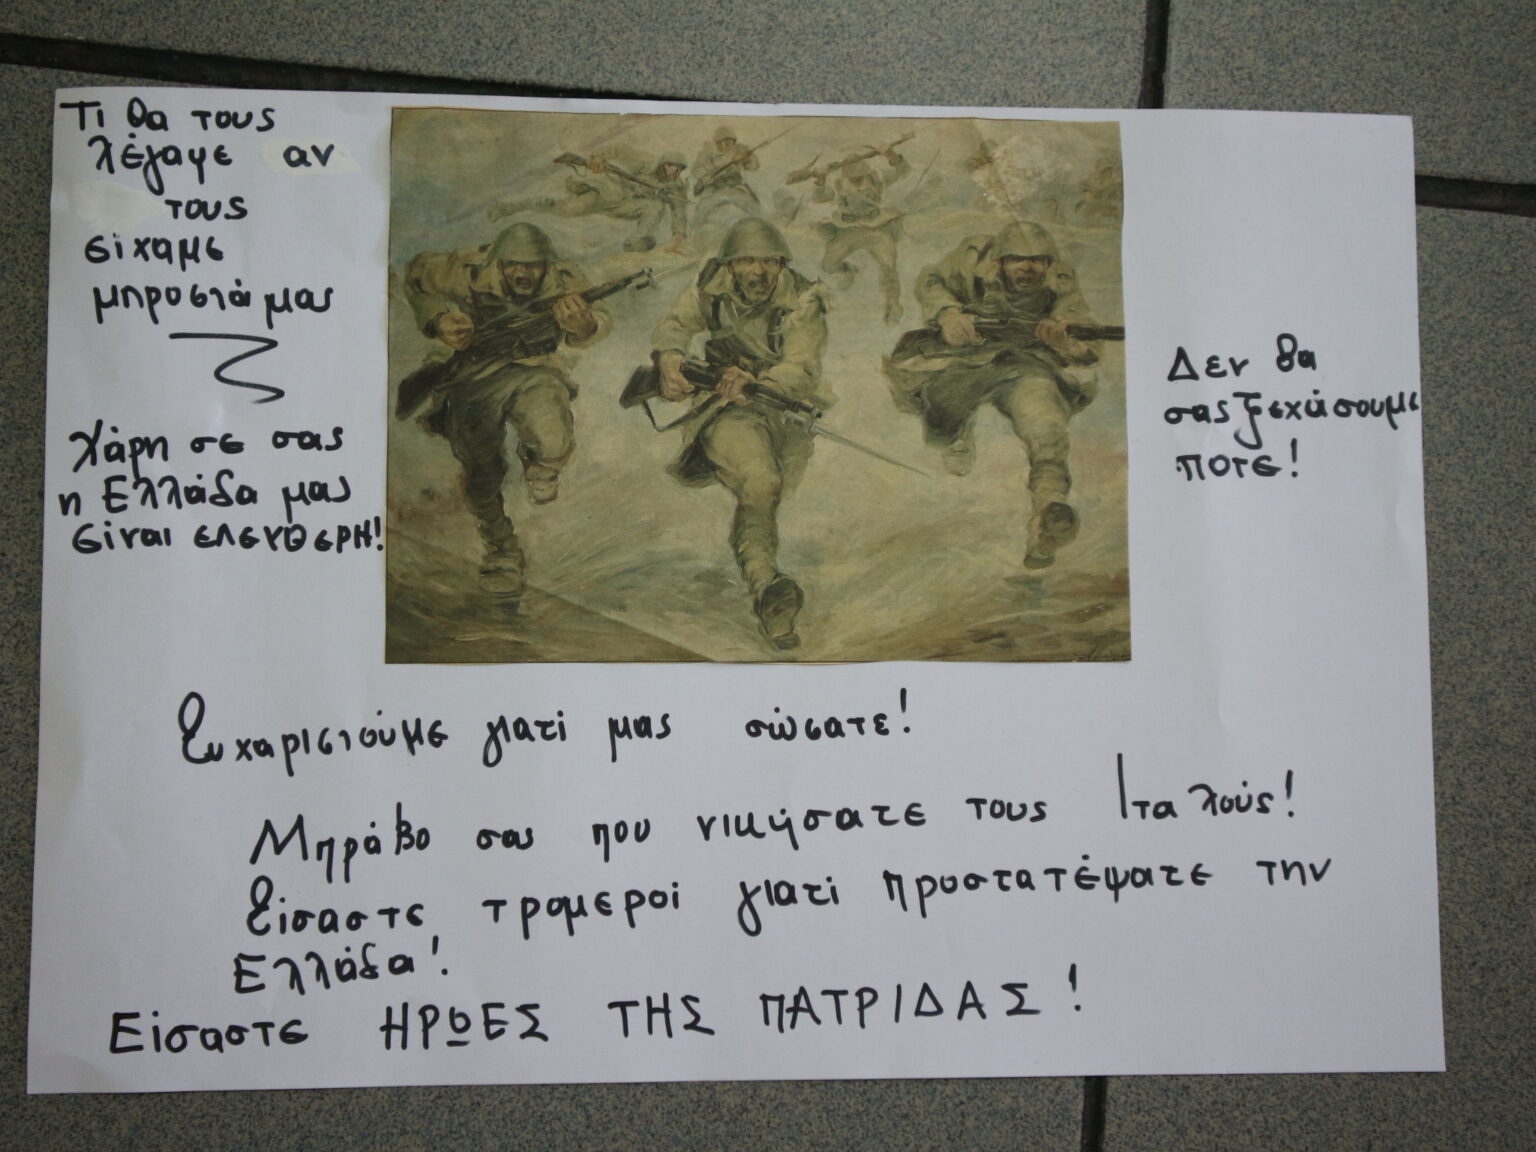 Τι θα τους
λέγαμε αν
τους
είχαμε
μπροστά μας
Χάρη σε σας
η Ελλάδα μας
είναι ΕΛΕΥΘΕΡΗ!
Δεν θα
σας ξεχάσουμε
ποτε!
Ευχαριστούμε γιατί μας σώσατε!
Μπράβο σας που νικήσατε τους Ιταλούς!
Είσαστε τρομεροί γιατί προστατέψατε την
Ελλάδα!
Είσαστε ΗΡΩΕΣ ΤΗΣ ΠΑΤΡΙΔΑΣ!